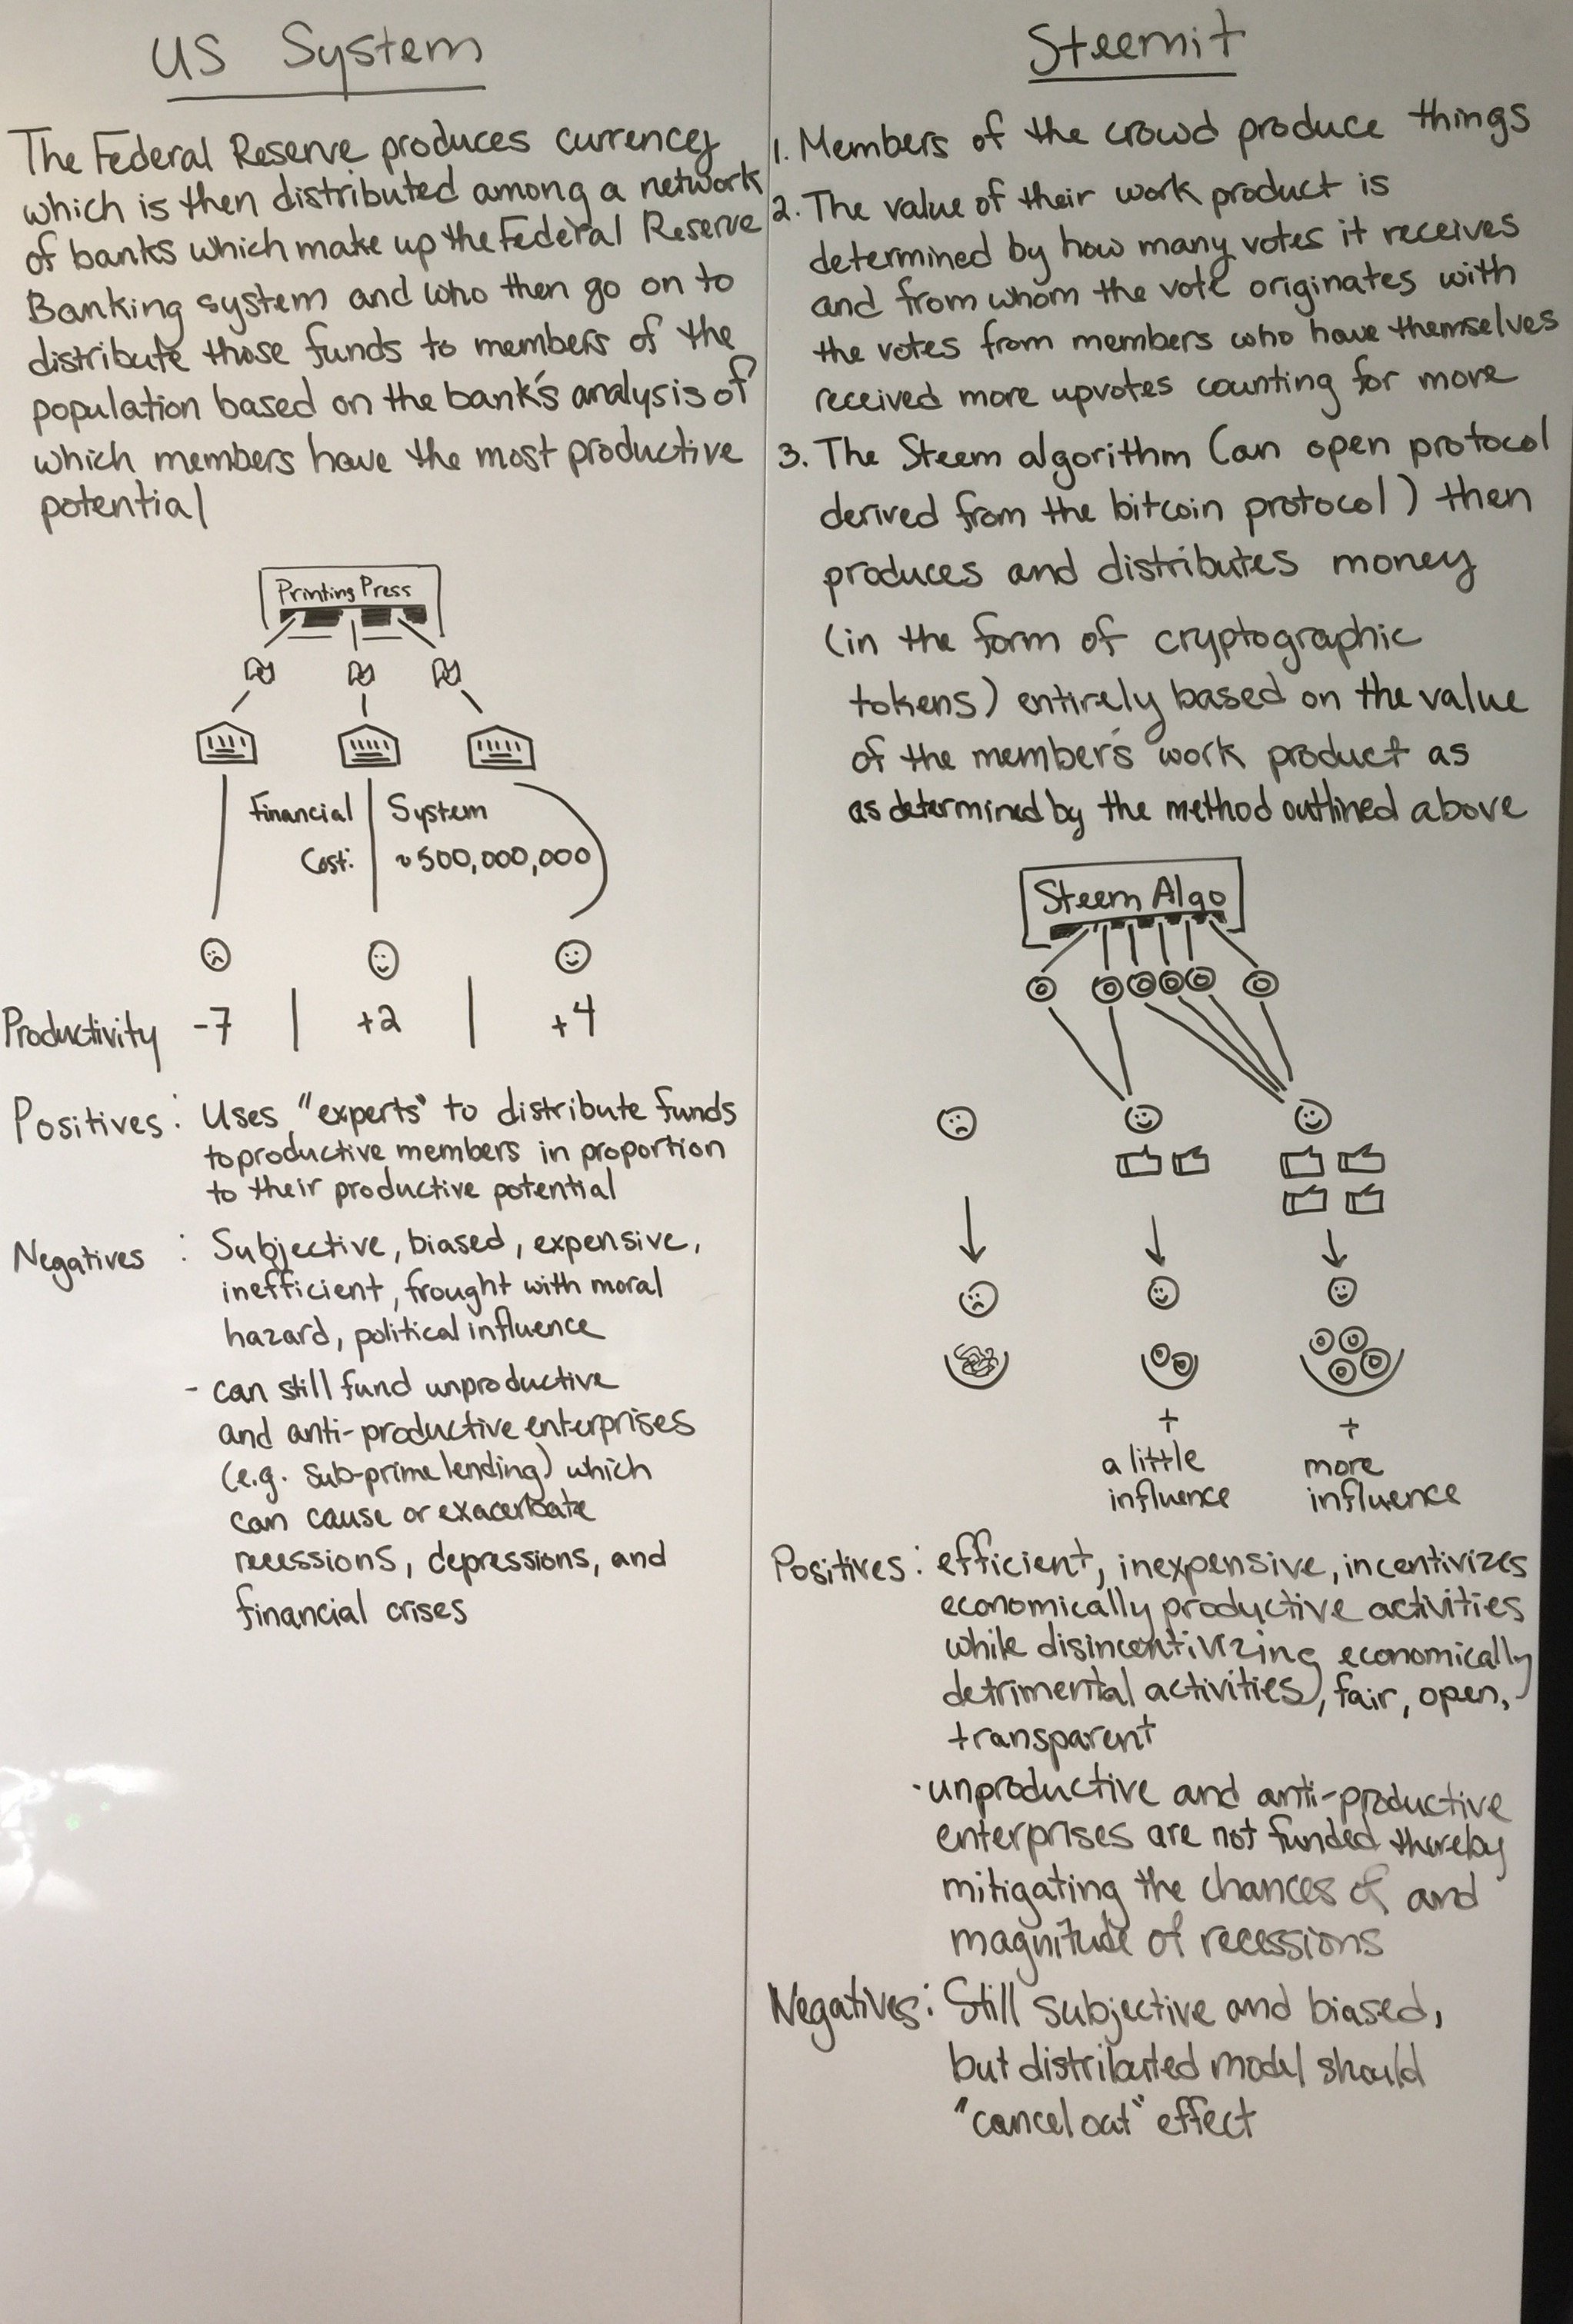 US System
The Federal Reserve produces currency
which is then distributed among a network
of banks which make up the Federal Reserve
Banking system and who then go on to
distribute those funds to members of the
population based on the bank's analysis of
which members have the most productive
potential
Printing Press
Financial System
Cost: ~500,000,000
Productivity -7 | +2 | +4
Positives: Uses "experts" to distribute funds
to productive members in proportion
to their productive potential
Negatives: Subjective, biased, expensive,
inefficient, frought with moral
hazard, political influence
- can still fund unproductive
and anti-productive enterprises
(e.g. sub-prime lending) which
can cause or exacerbate
recessions, depressions, and
financial crises
Steemit
1. Members of the crowd produce things
2. The value of their work product is
determined by how many votes it receives
and from whom the vote originates with
the votes from members who have themselves
received more upvotes counting for more
3. The Steem algorithm (an open protocol
derived from the bitcoin protocol) then
produces and distributes money
(in the form of cryptographic
tokens) entirely based on the value
of the member's work product as
as determined by the method outlined above
Steem Algo
+ +
a little more
influence influence
Positives: efficient, inexpensive, incentivizes
economically productive activities
while disincentivizing economically
detrimental activities, fair, open,
transparent
· unproductive and anti-productive
enterprises are not funded thereby
mitigating the chances of and
magnitude of recessions
Negatives: Still subjective and biased,
but distributed model should
"cancel out" effect